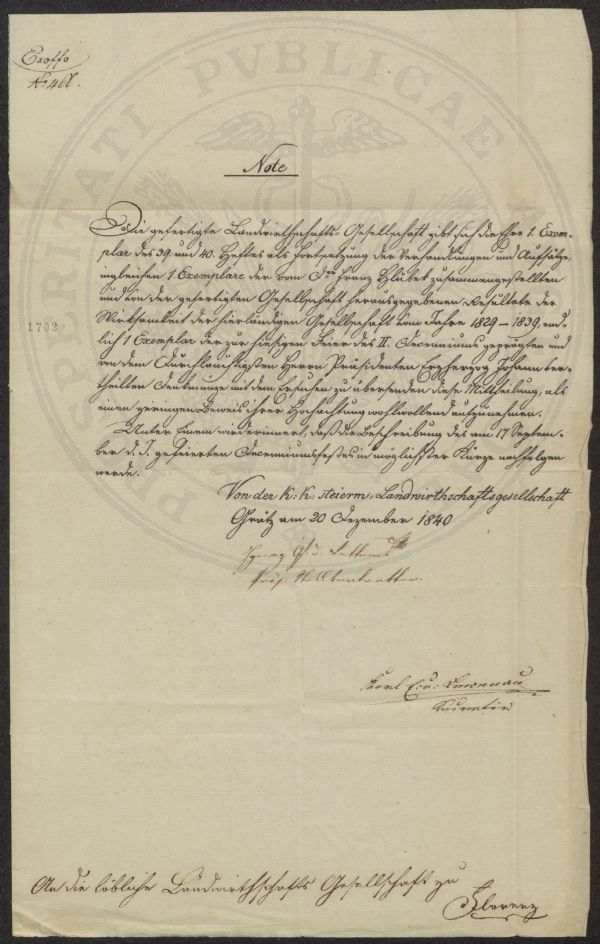 Exoffo
No 468.
PUBLICAE
Note
Die gefertigte Landwirthschafts-Gesellschaft gibt sich die Ehre 1 Exem-
plar des 39. und 40. Heftes als Fortsetzung der Verhandlungen und Aufsätze,
ingleichen 1 Exemplare der vom Dr. Franz Hlubek zusammengestellten
und von der gefertigten Gesellschaft herausgegebenen Resultate der
1702
Wirksamkeit der hierländigen Gesellschaft vom Jahre 1829 – 1839, end-
lich 1 Exemplar der zur hiesigen Feier des II. Decenniums geprägten und
von dem Durchlauchtigsten Herrn Präsidenten Erzherzog Johann ver-
theilten Denkmünze mit dem Ersuchen zu übersenden diese Mittheilung, als
einen geringen Beweis ihrer Hochachtung wohlwollend aufzunehmen.
Unter Einem wird erinnert, daß die Beschreibung des am 17 Septem-
ber d. J. gefeierten Decenniumsfestes in möglichster Kürze nachfolgen
werde.
Von der k: k: steierm. Landwirthschaftsgesellschaft
Grätz am 20 Dezember 1840
Karl
An die löbliche Landwirthschafts Gesellschaft zu
Florenz